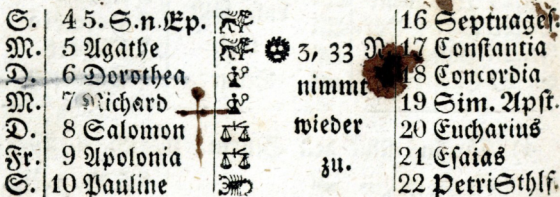 S. 4 5. S. n. Ep. 16 Septuages.
M. 5 Agathe 3, 33 N. 17 Constantia
D. 6 Dorothea nimmt 18 Concordia
M. 7 Richard 19 Sim. Apst.
D. 8 Salomon wieder 20 Eucharius
Fr. 9 Apolonia zu. 21 Esaias
S. 10 Pauline 22 Petri Sthlf.